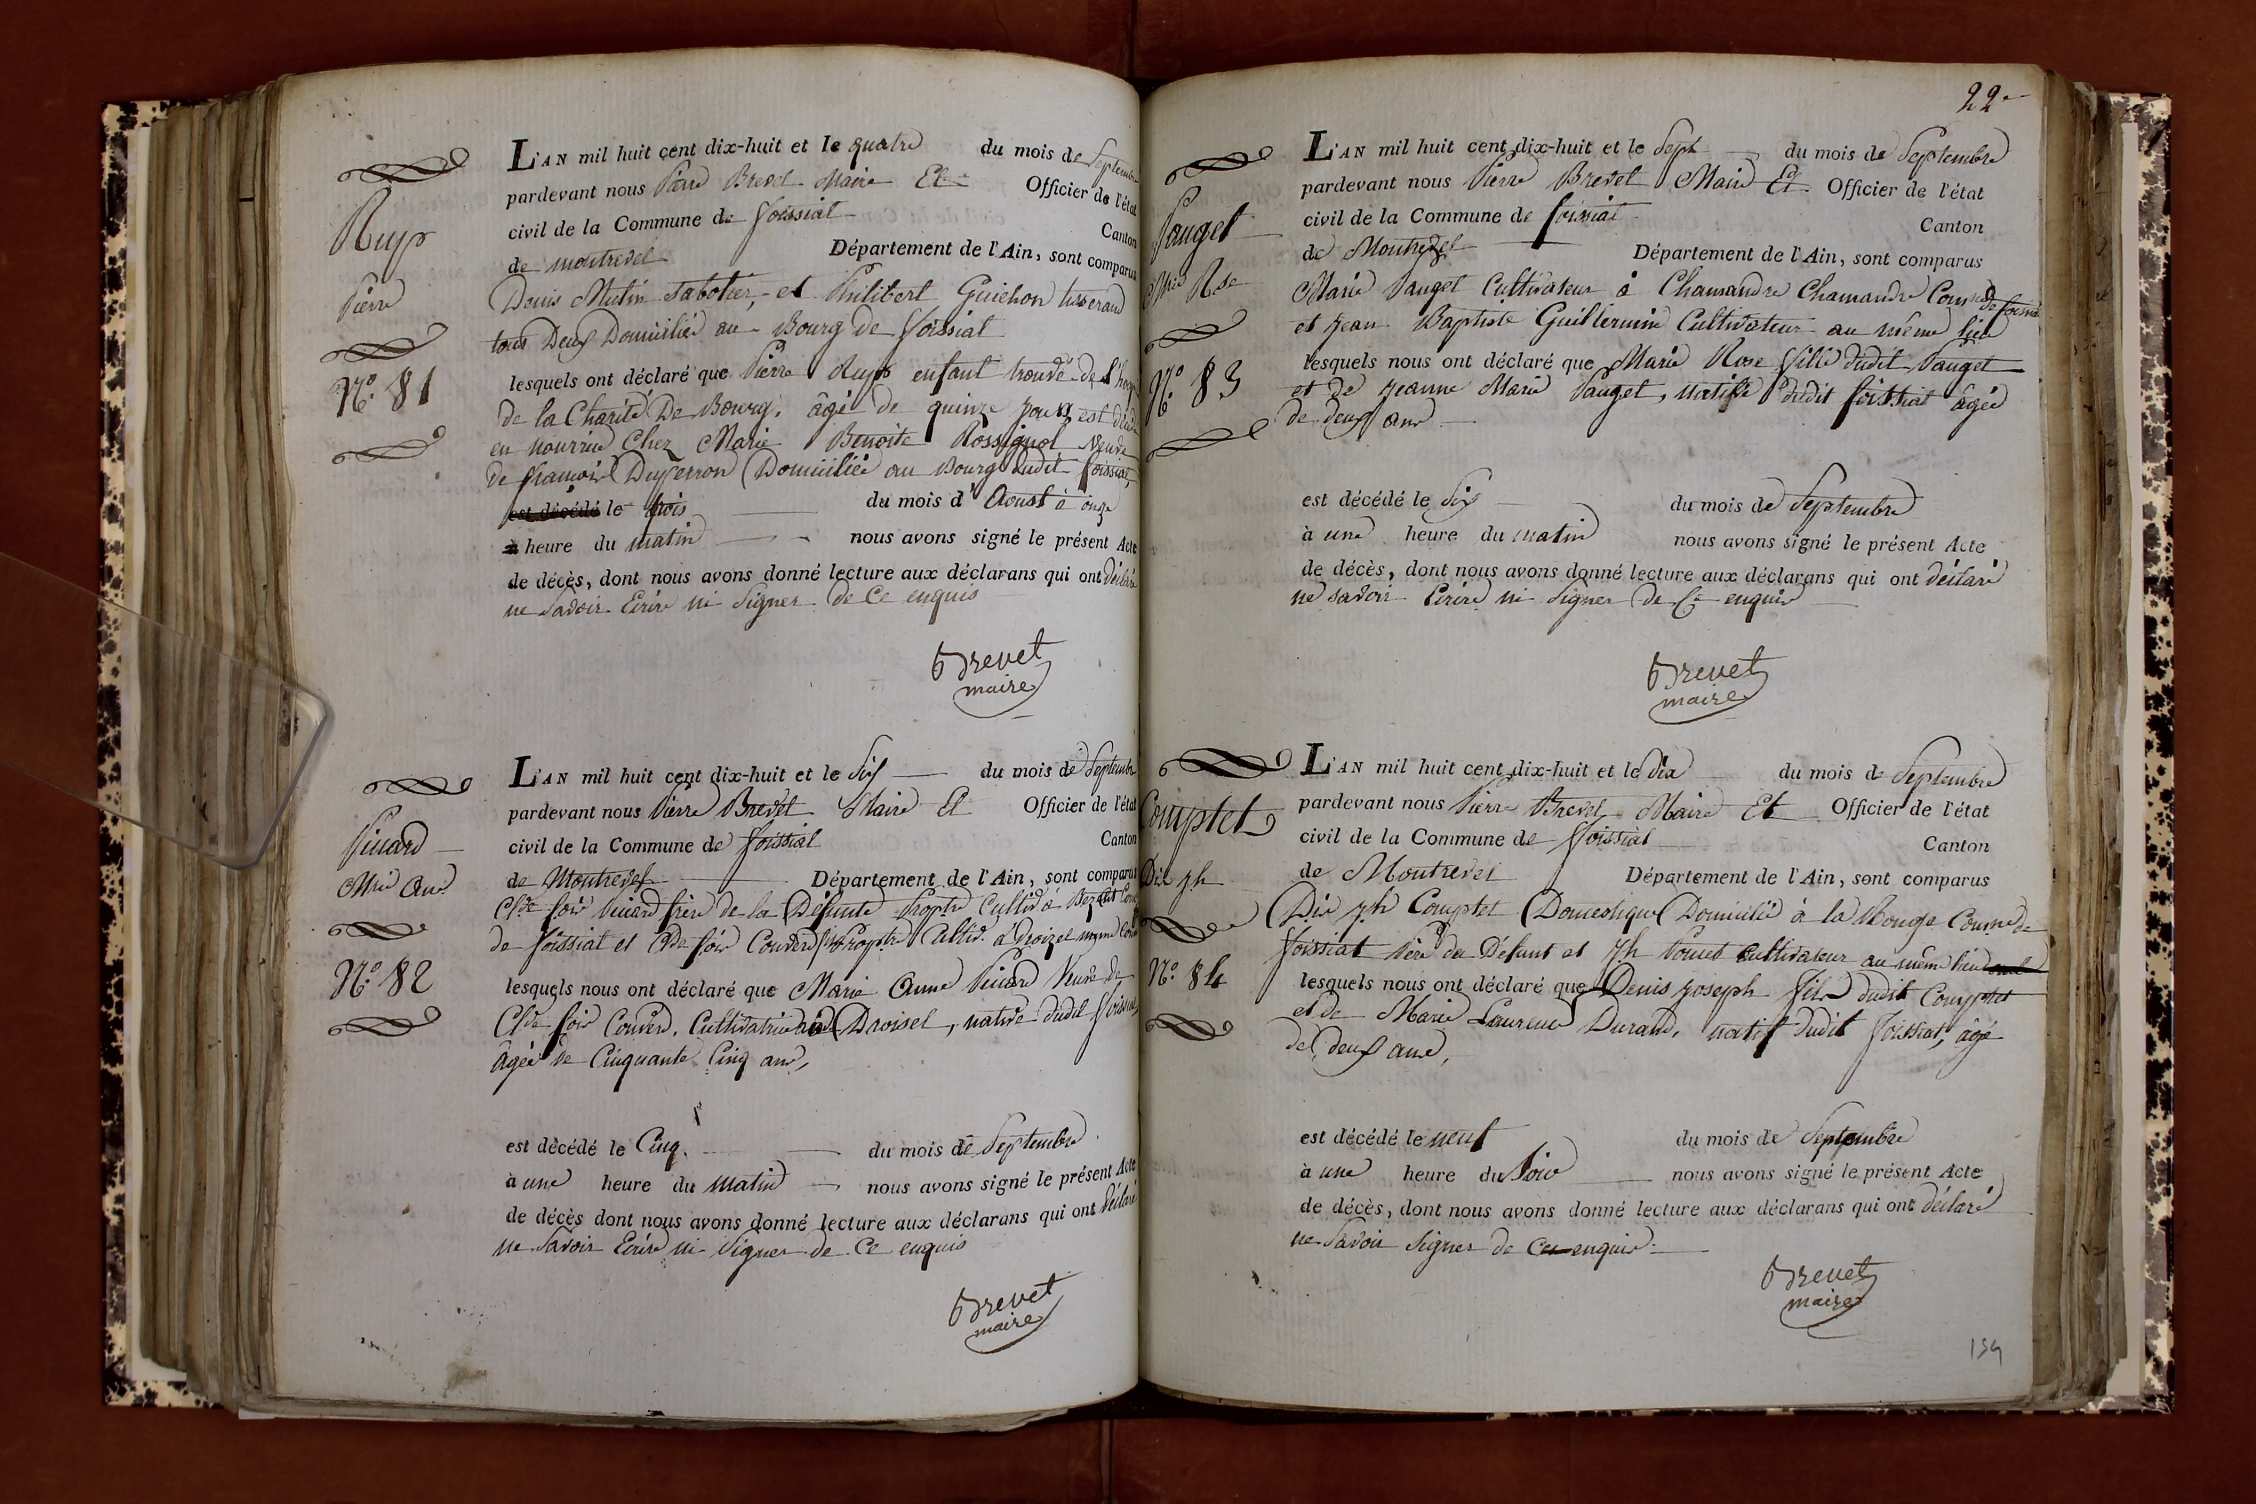 L'AN mil huit cent dix-huit et le quatre du mois de Septembre
pardevant nous Pierre Brevet Maire Et Officier de l'état
civil de la Commune de foissiat Canton
de montrevel Département de l'Ain, sont comparus
Denis Mutin Sabotier, et Philibert Guichon tisserand
tous Deux Domicilié au Bourg de foissiat
lesquels ont déclaré que Pierre Rups enfant trouvé de
de la Charité De Bourg, âgé de quinze jours est
en nourrice Chez Marie Benoite Rossignol Veuve
de francois Duperron Domiciliée au Bourg dudit foissiat,
est décédé le trois du mois d' Aoust à onze
à heure du matin nous avons signé le présent Acte
de décès, dont nous avons donné lecture aux déclarans qui ont déclaré
ne Savoir Ecrire ni Signer de Ce enquis
Brevet
maire
Rups
Pierre
N.º 81
L'AN mil huit cent dix-huit et le Six du mois de Septembre
pardevant nous Pierre Brevet Maire Et Officier de l'état
civil de la Commune de foissiat Canton
de Montrevel Département de l'Ain, sont comparus
Clde foix Picard frère de la Défunte Proptre Cultivr à
de foissiat et Clde foix Couverd fils Proptre Cultiv. à Droizel
lesquels nous ont déclaré que Marie Anne Picard Veuve de
Clde foix Couverd, Cultivatrice à Droisel, native dudit foissiat,
âgée de Cinquante Cinq ans,
est décédé le Cinq. du mois de Septembre
à une heure du matin nous avons signé le présent Acte
de décès dont nous avons donné lecture aux déclarans qui ont déclaré
ne Savoir Ecrire ni Signer de Ce enquis
Brevet
maire
Picard
Mrie Ane
N.º 82
22
L'AN mil huit cent dix-huit et le Sept du mois de Septembre
pardevant nous Pierre Brevet Maire Et Officier de l'état
civil de la Commune de foissiat Canton
de Montrevel Département de l'Ain, sont comparus
Marie Pauget Cultivateur à Chamandre Chamandre Comne de foissiat
et jean Baptiste Guillermin Cultivateur au même lieu
lesquels nous ont déclaré que Marie Rose fille dudit Pauget
et de jeanne Marie Pauget, native dudit foissiat âgée
de deux ans
est décédé le Six du mois de Septembre
à une heure du matin nous avons signé le présent Acte
de décès, dont nous avons donné lecture aux déclarans qui ont déclaré
ne savoir Ecrire ni Signer de Ce enquis
Brevet
maire
Pauget
Mrie Rse
N.º 83
L'AN mil huit cent dix-huit et le dix du mois de Septembre
pardevant nous Pierre Brevet Maire Et Officier de l'état
civil de la Commune de foissiat Canton
de Montrevel Département de l'Ain, sont comparus
Dis jph Comptet Domestique Domicilié à la Rouge Comne de
foissiat Père du Défunt et jph cultivateur au même lieu
lesquels nous ont déclaré que Denis joseph fils dudit Comptet
et de Marie Laurence Durand, natif dudit foissiat, âgé
de deux ans,
est décédé le neuf du mois de Septembre
à une heure du Soir nous avons signé le présent Acte
de décès, dont nous avons donné lecture aux déclarans qui ont déclaré
ne Savoir Signer de Ce enquis
Brevet
maire
Comptet
Dis jph
N.º 84
159